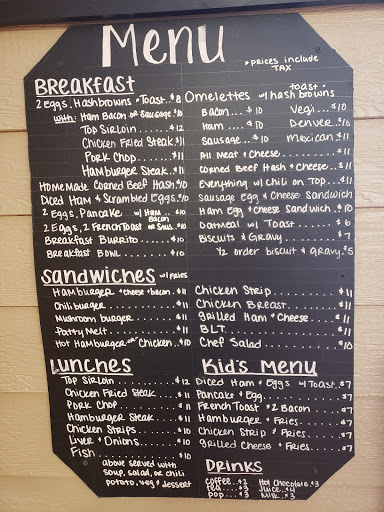 Menu
*prices include
TAX
BREAKFAST
2 Eggs, Hashbrowns + Toast. $8
with: Ham Bacon or Sausage $10
Top Sirloin.....$12
Chicken Fried Steak $11
Pork Chop......$11
Hamburger Steak $11
Home Made Corned Beef Hash.$10
Diced Ham + Scrambled Eggs.$10
2 Eggs, Pancake w/ Ham Bacon $10
2 Eggs, 2 French Toast or $10
Breakfast Burrito....$10
Breakfast BOWL.....$10
Omelettes w/ toast + hashbrowns
Bacon....$10
Ham.....$10
Sausage..$10
Vegi...$10
Denver $10
Mexican $11
All Meat + Cheese.......$11
Corned Beef Hash + Cheese...$11
Everything w/ Chili on Top...$11
Sausage Egg + Cheese Sandwich
Ham Egg + Cheese Sandwich.$10
Oatmeal w/ Toast......$6
Biscuits + Gravy.......$7
1/2 order biscuit + gravy.$5
Sandwiches w/ Fries
Hamburger + cheese + bacon..$11
Chili burger..........$11
Mushroom burger.......$11
Patty Melt...........$11
Hot Hamburger or Chicken..$10
Chicken Strip.........$11
Chicken Breast........$11
Grilled Ham + Cheese....$11
BLT...............$11
Chef Salad..........$10
Lunches
Top Sirloin.......$12
Chicken Fried Steak...$11
Pork Chop.........$11
Hamburger Steak....$11
Chicken Strips.....$10
Liver + Onions.....$10
Fish............$10
above served with
soup, salad, or chili
potato, veg + dessert
Kid's Menu
Diced Ham + Eggs w/ Toast.$7
Pancake + Egg.........$7
French Toast + 2 Bacon...$7
Hamburger + Fries......$7
Chicken Strip + Fries....$7
Grilled Cheese + Fries...$7
Drinks
Coffee..$2 Hot Chocolate.$3
Tea...$3 Juice..$4
Pop...$3 Milk..$3